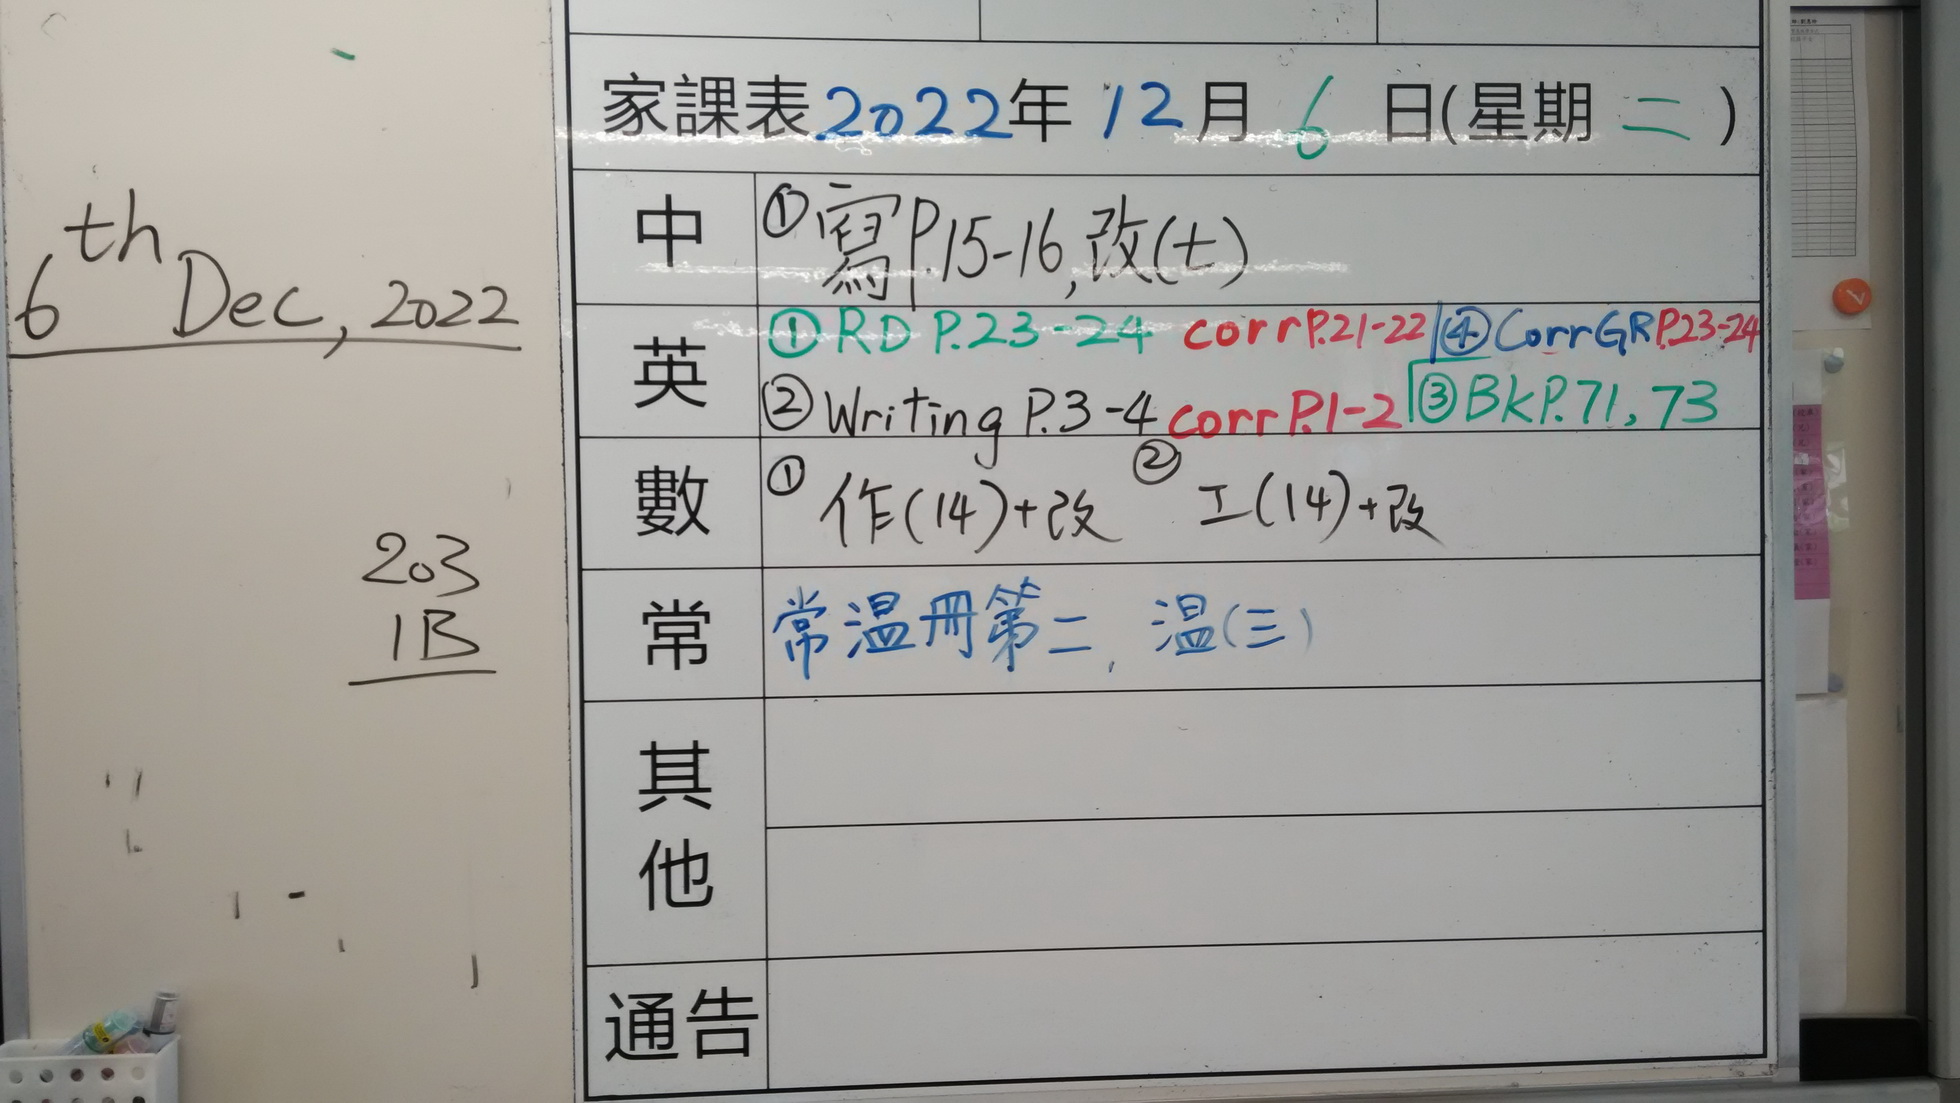 6th Dec, 2022
203
1B
家課表2022年12月6日(星期二)
中
①寫P.15-16,改(七)
英
①RD P.23-24 corr P.21-22 ④Corr GR P.23-24
②Writing P.3-4 corr P.1-2 ③Bk P.71, 73
數
①作(14)+改 ②工(14)+改
常
常溫冊第二, 溫(三)
其他
通告